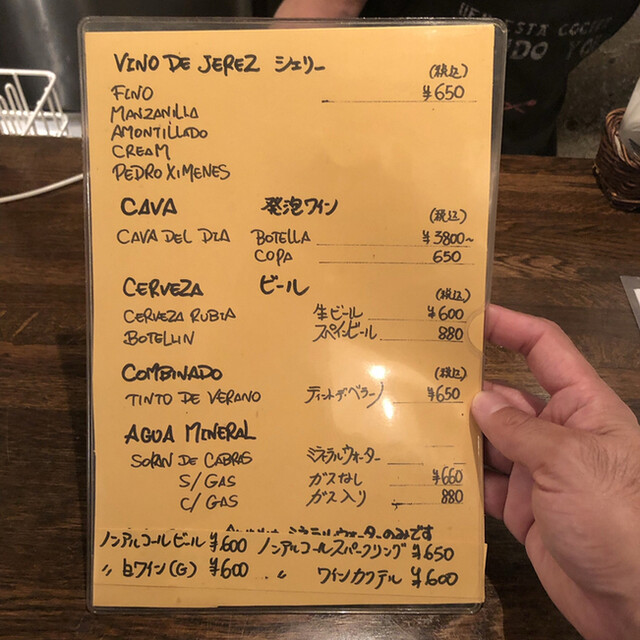 VEN ESTA COCHE
VINO DE JEREZ シェリー (税込)
FINO ¥650
MANZANILLA
AMONTILLADO
CREAM
PEDRO XIMENES
CAVA 発泡ワイン (税込)
CAVA DEL DIA BOTELLA ¥3800~
COPA 650
CERVEZA ビール (税込)
CERVEZA RUBIA 生ビール ¥600
BOTELLIN スペインビール 880
COMBINADO (税込)
TINTO DE VERANO ティントデベラーノ ¥650
AGUA MINERAL
SOLAN DE CABRAS ミネラルウォーター
S/GAS ガスなし ¥660
C/GAS ガス入り 880
ミネラルウォーターのみです
ノンアルコールビール ¥600 ノンアルコールスパークリング ¥650
〃 白ワイン(G) ¥600 〃 ワインカクテル ¥600